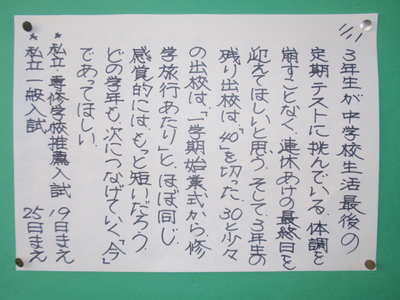 3年生が中学校生活最後の
定期テストに挑んでいる。体調を
崩すことなく、連休あけの最終日を
迎えてほしいと思う。そして3年生の
残り出校は、“40”を切った。30と少々
の出校は、「一学期始業式から、修
学旅行あたり」と、ほぼ同じ。
感覚的には、もっと短いだろう。
どの学年も、次につなげていく「今」
であってほしい。
*私立・専修学校推薦入試 19日まえ
*私立一般入試 25日まえ
11/11